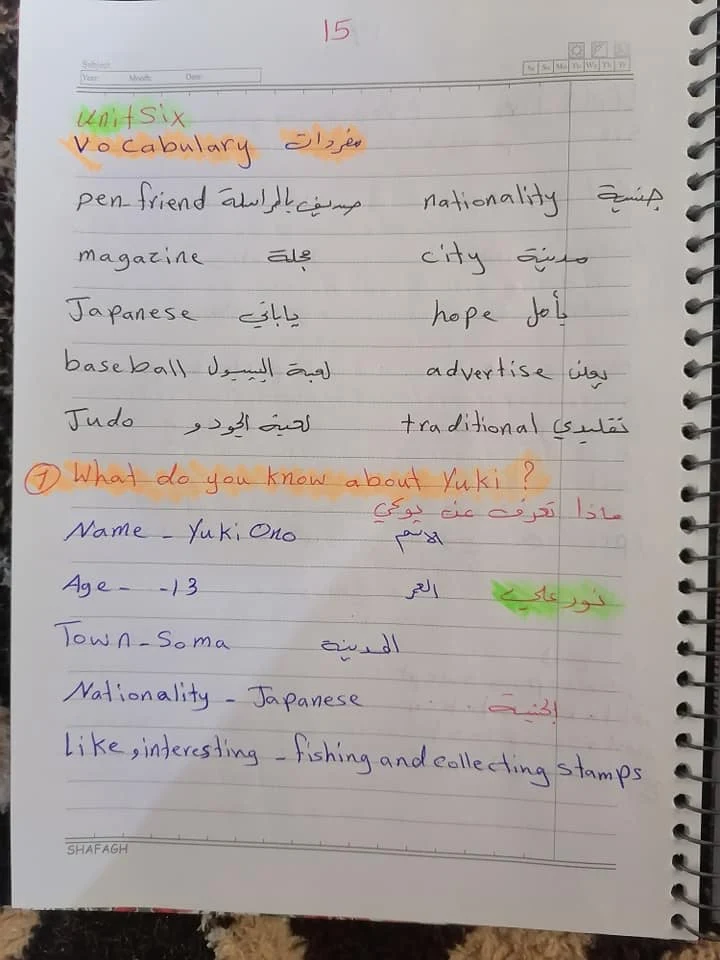 15
Subject:
Year: Month: Date:
Sa Su Mo Tu We Th Fr
Unit Six
Vocabulary مفردات
pen friend صديق بالمراسلة nationality جنسية
magazine مجلة city مدينة
Japanese ياباني hope يأمل
baseball لعبة البيسبول advertise يعلن
Judo لعبة الجودو traditional تقليدي
1 What do you know about Yuki ?
ماذا تعرف عن يوكي
Name - Yuki Ono الاسم
Age - -13 العمر نور علي
Town - Soma المدينة
Nationality - Japanese الجنسية
Like , interesting - fishing and collecting stamps
SHAFAGH